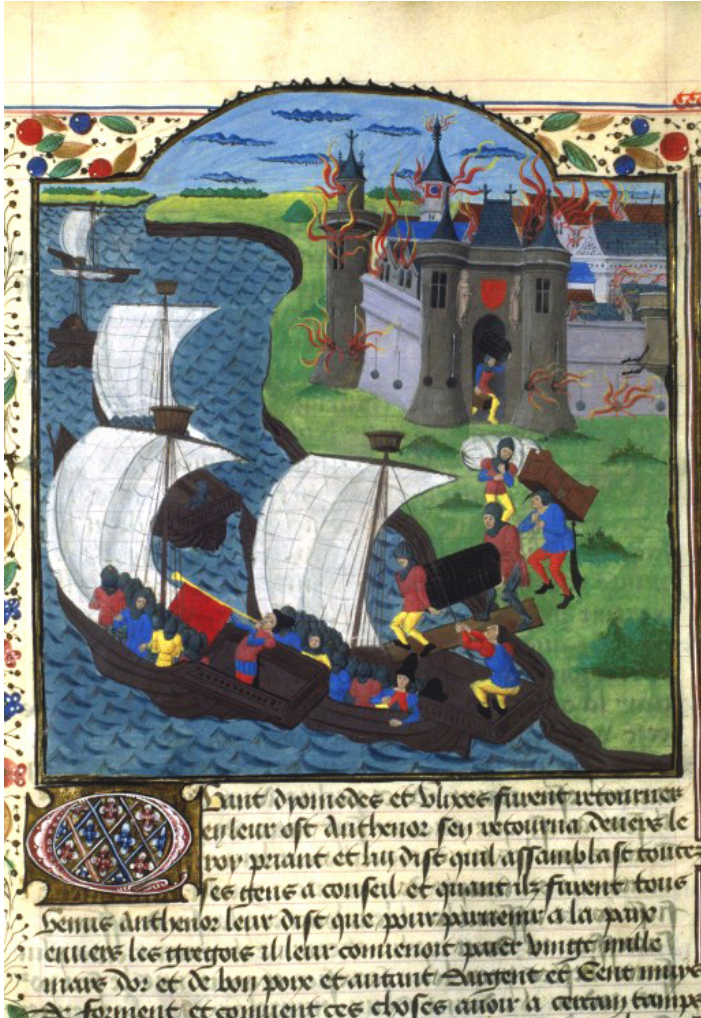 Quant dyomedes et Vlixes furent retournes
en leur ost Anthenor sen retourna deuers le
roy priant et lui dist quil assamblast toutes
ses gens a conseil et quant ilz furent tous
venus Anthenor leur dist que pour paruenir a la paix
enuers les gregois il leur conuenoit paier vingt mille
mars dor et de bon poix et autant dargent et Cent muys
de forment et conuient ces choses auoir a certain temps